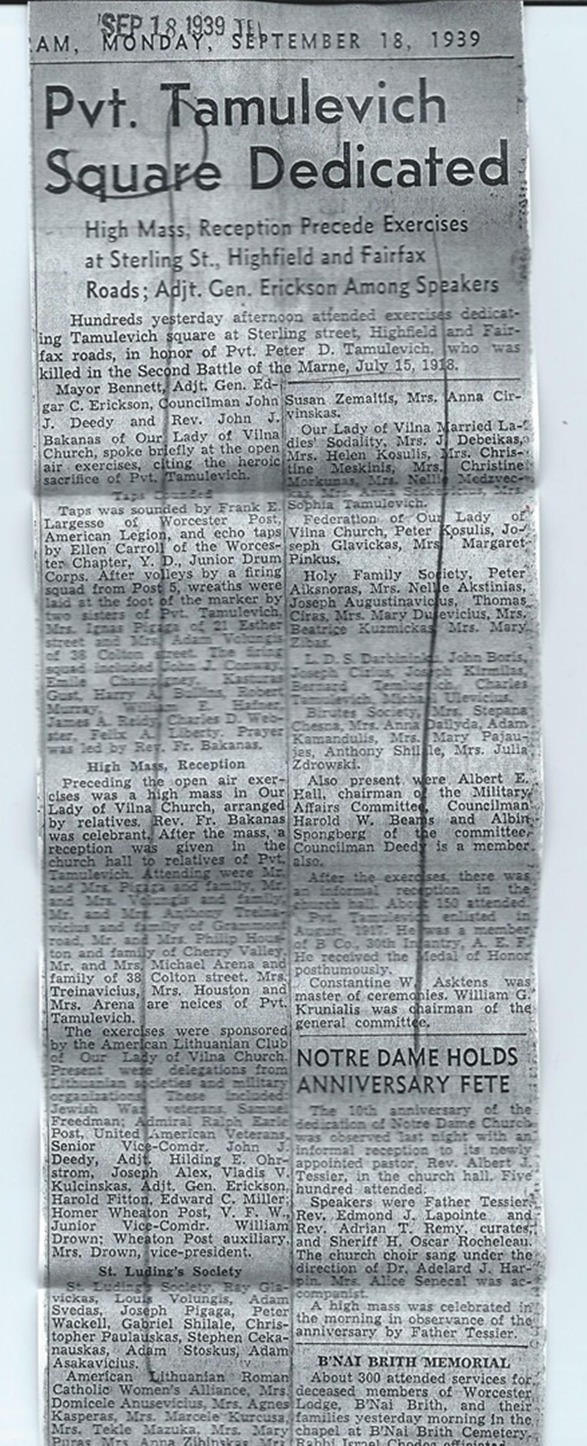 SEP 18 1939
AM, MONDAY, SEPTEMBER 18, 1939
Pvt. Tamulevich
Square Dedicated
High Mass, Reception Precede Exercises
at Sterling St., Highfield and Fairfax
Roads; Adjt. Gen. Erickson Among Speakers
Hundreds yesterday afternoon attended exercises dedicat-
ing Tamulevich square at Sterling street, Highfield and Fair-
fax roads, in honor of Pvt. Peter D. Tamulevich, who was
killed in the Second Battle of the Marne, July 15, 1918.
Mayor Bennett, Adjt. Gen. Ed-
gar C. Erickson, Councilman John
J. Deedy and Rev. John J.
Bakanas of Our Lady of Vilna
Church, spoke briefly at the open
air exercises, citing the heroic
sacrifice of Pvt. Tamulevich.
Taps Sounded
Taps was sounded by Frank E.
Largesse of Worcester Post,
American Legion, and echo taps
by Ellen Carroll of the Worces-
ter Chapter, Y. D., Junior Drum
Corps. After volleys by a firing
squad from Post 5, wreaths were
laid at the foot of the marker by
two sisters of Pvt. Tamulevich,
Mrs. Ignas Pigaga of 21 Esther
street and Mrs. Adam Volungis
of 38 Colton street. The firing
squad included John J. Conway,
Emile Kasturas
Gust, Harry A. Bullins, Robert
Murray, William E. Hafner,
James A. Reidy, Charles D. Web-
ster, Felix A. Liberty. Prayer
was led by Rev. Fr. Bakanas.
High Mass, Reception
Preceding the open air exer-
cises was a high mass in Our
Lady of Vilna Church, arranged
by relatives. Rev. Fr. Bakanas
was celebrant. After the mass, a
reception was given in the
church hall to relatives of Pvt.
Tamulevich. Attending were Mr.
and Mrs. Pigaga and family, Mr.
and Mrs. Volungis and family,
Mr. and Mrs. Anthony Treina-
vicius and family of
road, Mr. and Mrs. Philip Hous-
ton and family of Cherry Valley,
Mr. and Mrs. Michael Arena and
family of 38 Colton street. Mrs.
Treinavicius, Mrs. Houston and
Mrs. Arena are neices of Pvt.
Tamulevich.
The exercises were sponsored
by the American Lithuanian Club
of Our Lady of Vilna Church.
Present were delegations from
Lithuanian societies and military
organizations. These included:
Jewish War veterans, Samuel
Freedman; Admiral Ralph Earle
Post, United American Veterans,
Senior Vice-Comdr. John J.
Deedy, Adjt. Hilding E. Ohr-
strom, Joseph Alex, Vladis V.
Kulcinskas, Adjt. Gen. Erickson,
Harold Fitton, Edward C. Miller;
Homer Wheaton Post, V. F. W.,
Junior Vice-Comdr. William
Drown; Wheaton Post auxiliary,
Mrs. Drown, vice-president.
St. Luding's Society
St. Luding's Society, Ray Gla-
vickas, Louis Volungis, Adam
Svedas, Joseph Pigaga, Peter
Wackell, Gabriel Shilale, Chris-
topher Paulauskas, Stephen Ceka-
nauskas, Adam Stoskus, Adam
Asakavicius.
American Lithuanian Roman
Catholic Women's Alliance, Mrs.
Domicele Anusevicius, Mrs. Agnes
Kasperas, Mrs. Marcele Kurcusa,
Mrs. Tekle Mazuka, Mrs. Mary
Puras, Mrs. Anna Zibinskas, Mrs.
Susan Zemaitis, Mrs. Anna Cir-
vinskas.
Our Lady of Vilna Married La-
dies' Sodality, Mrs. J. Debeikas,
Mrs. Helen Kosulis, Mrs. Chris-
tine Meskinis, Mrs. Christine
Morkunas, Mrs. Nellie Medzvec-
kas, Mrs. Anne Mrs.
Sophia Tamulevich.
Federation of Our Lady of
Vilna Church, Peter Kosulis, Jo-
seph Glavickas, Mrs. Margaret
Pinkus.
Holy Family Society, Peter
Aiksnoras, Mrs. Nellie Akstinias,
Joseph Augustinavicius, Thomas
Ciras, Mrs. Mary Dusevicius, Mrs.
Beatrice Kuzmickas, Mrs. Mary
Zibas.
L. D. S. Darbininkų, John Boris,
Joseph Joseph Kirmilas,
Bernard Charles
Tamulevich, Michael Ulevicius.
Birutes Society, Mrs. Stepana
Chesna, Mrs. Anna Dailyda, Adam
Kamandulis, Mrs. Mary Pajau-
jes, Anthony Shilale, Mrs. Julia
Zdrowski.
Also present were Albert E.
Hall, chairman of the Military
Affairs Committee, Councilman
Harold W. Beams and Albin
Spongberg of the committee.
Councilman Deedy is a member
also.
After the exercises, there was
an informal reception in the
church hall. About 150 attended.
Pvt. Tamulevich enlisted in
August, 1917. He was a member
of B Co., 30th Infantry, A. E. F.
He received the Medal of Honor
posthumously.
Constantine W. Asktens was
master of ceremonies. William G.
Krunialis was chairman of the
general committee.
NOTRE DAME HOLDS
ANNIVERSARY FETE
The 10th anniversary of the
dedication of Notre Dame Church
was observed last night with an
informal reception to its newly
appointed pastor, Rev. Albert J.
Tessier, in the church hall. Five
hundred attended.
Speakers were Father Tessier,
Rev. Edmond J. Lapointe and
Rev. Adrian T. Remy, curates,
and Sheriff H. Oscar Rocheleau.
The church choir sang under the
direction of Dr. Adelard J. Har-
pin. Mrs. Alice Senecal was ac-
companist.
A high mass was celebrated in
the morning in observance of the
anniversary by Father Tessier.
B'NAI BRITH MEMORIAL
About 300 attended services for
deceased members of Worcester
Lodge, B'Nai Brith, and their
families yesterday morning in the
chapel at B'Nai Brith Cemetery.
Rabbi Israel Chodos officiated